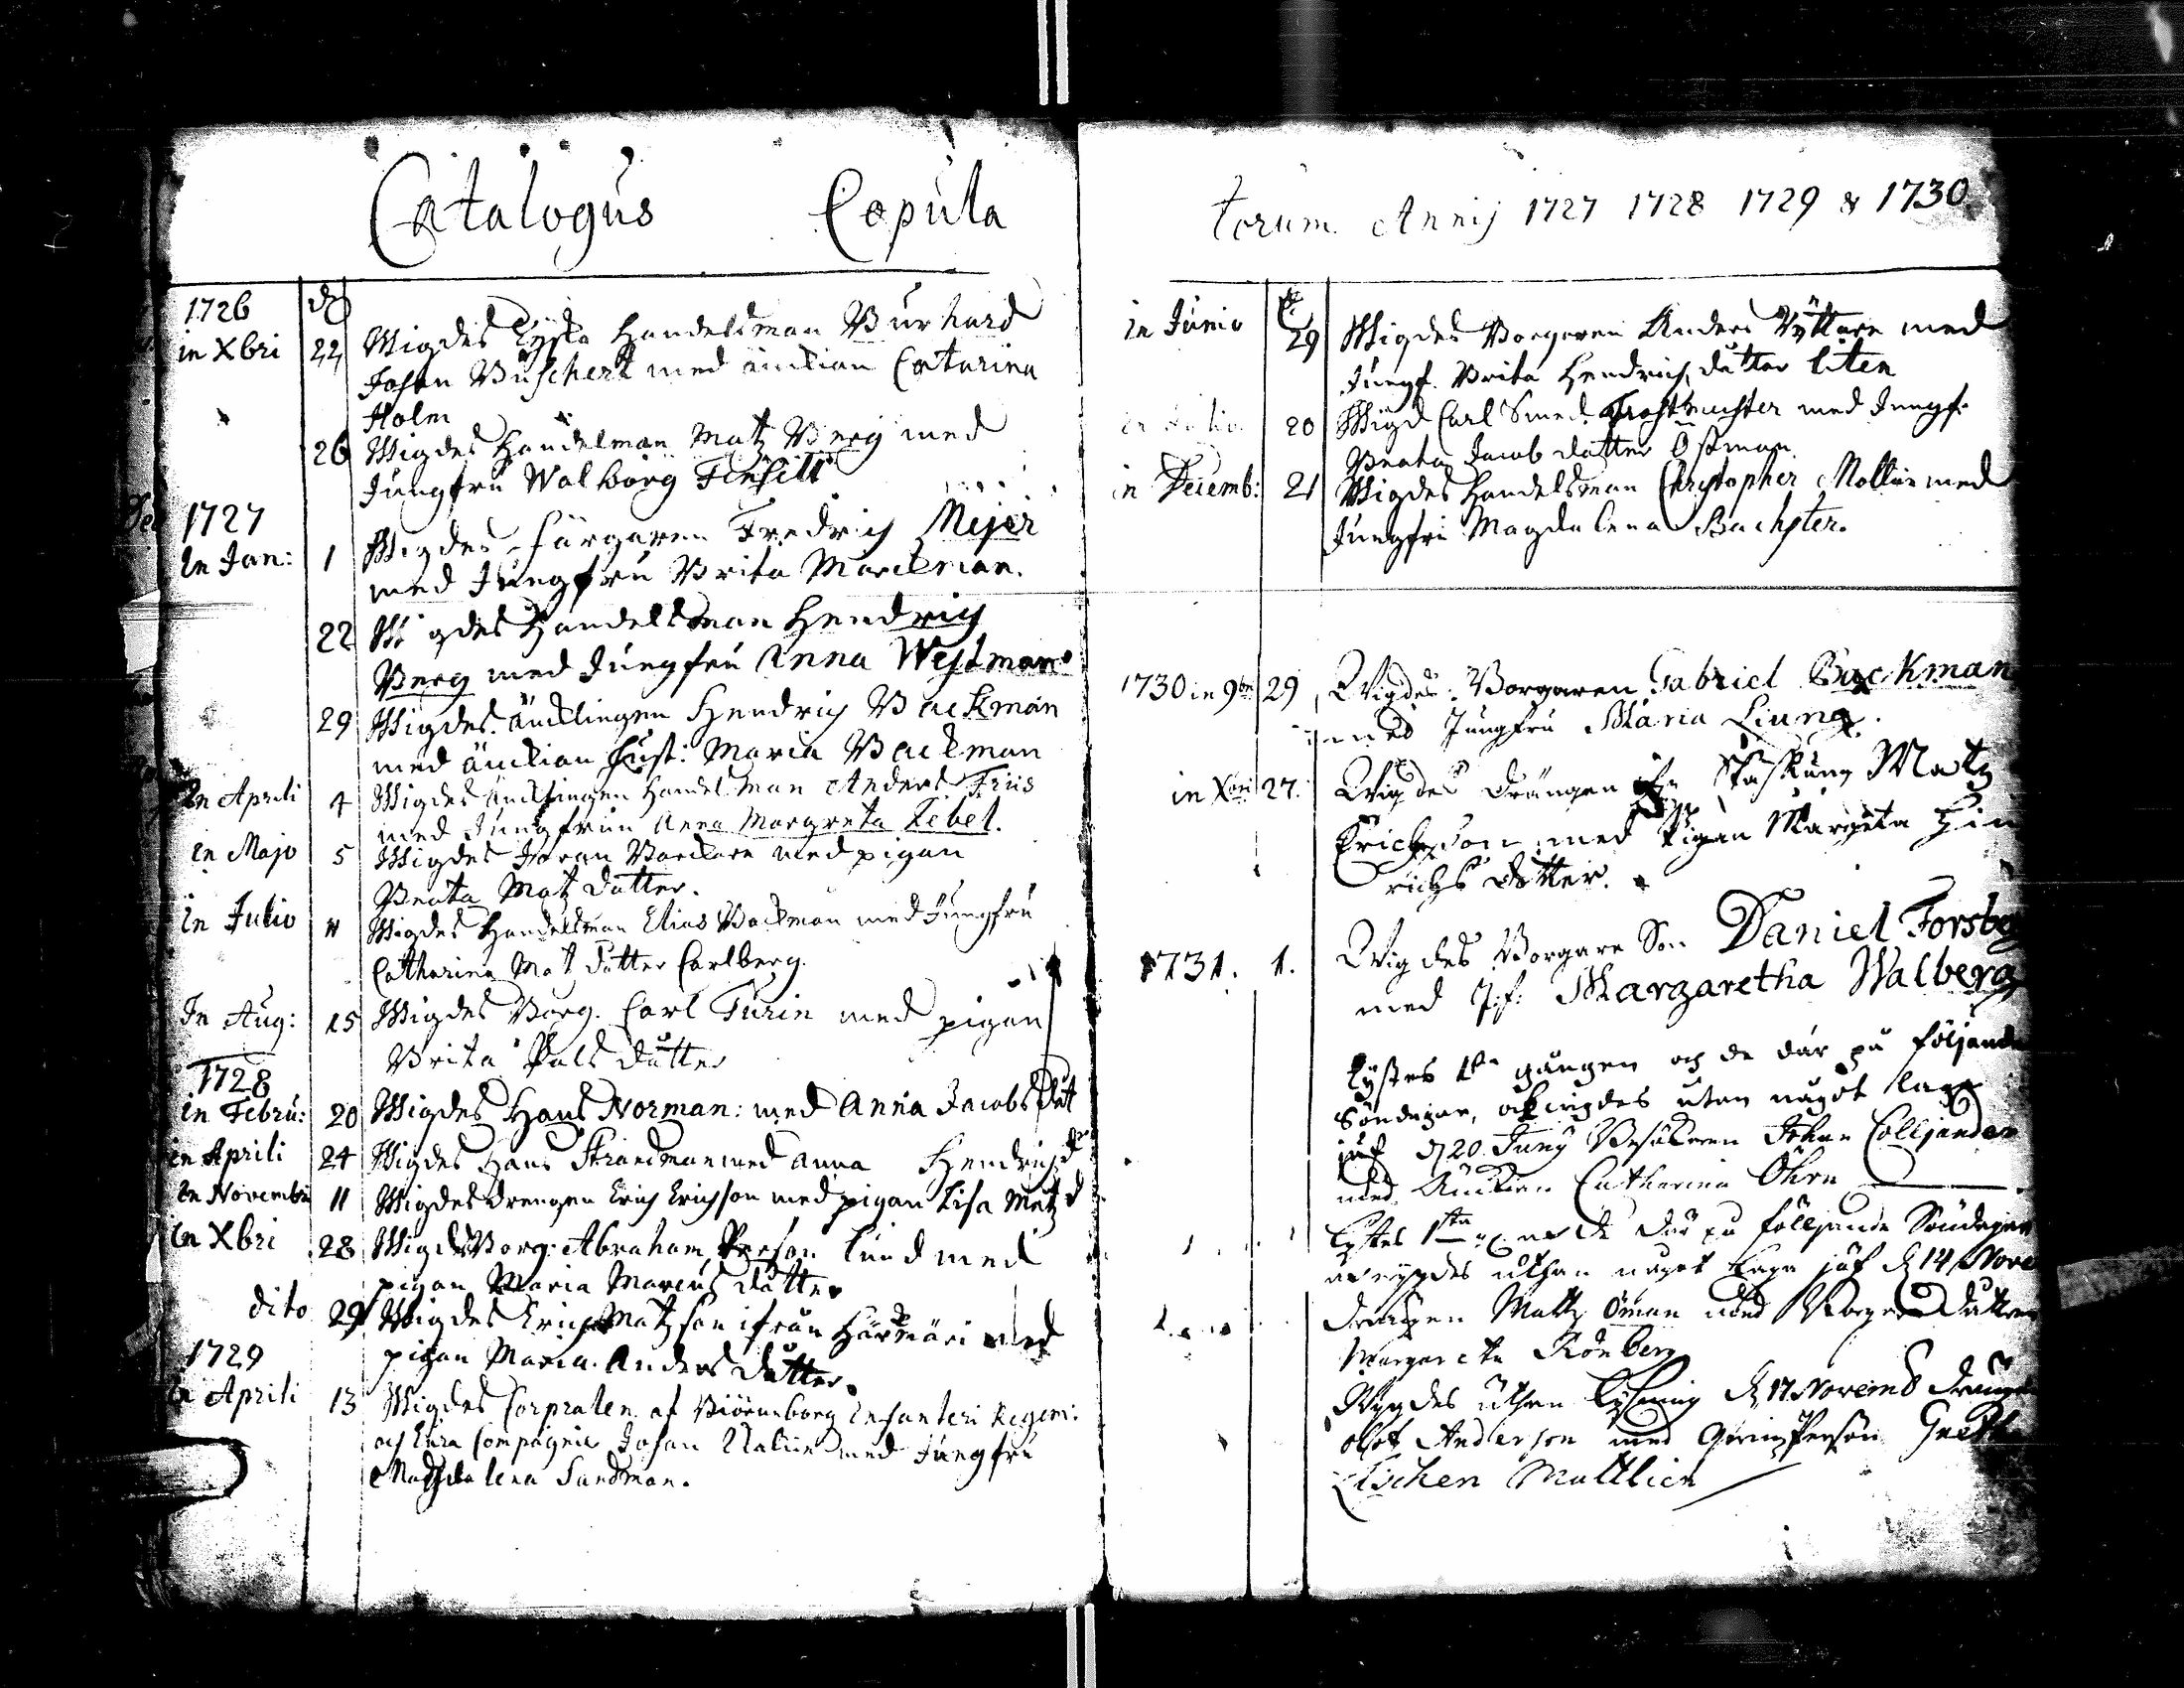 Catalogus Copula
torum Annij 1727 1728 1729 & 1730
1726
in Xbri 22 Wigdes Tyska Handelsman Burhard
Johan Büschert med änckian Catarina
Holm
26 Wigdes Handelsman Matz Berg med
Jungfru Walborg
1727
In Jan: 1 Wigdes färgaren Fredrich Mejer
med Jungfru Brita Marckman.
22 Wigdes Handelsman Hendrich
Berg med Jungfru Anna Westman
29 Wigdes äncklingen Hendrich Backman
med änckian hust: Maria Backman
In Aprili 4 Wigdes äncklingen Handelsman Anders Friis
med Jungfrun Anna Margreta Zebel.
in Majo 5 Wigdes Joran med pigan
Beata Matz datter.
in Julio 11 Wigdes Handelsman Elias Backman med Jungfru
Catharina Mat datter Carlberg.
In Aug: 15 Wigdes Borg. Carl Turin med pigan
Brita Påls datter
1728
in Febru: 20 Wigdes Hans Norman: med Anna Jacobs dat
in Aprili 24 Wigdes Hans Strandman med Anna Hendrichs d
In Novembri 11 Wigdes drengen Erich Erichson med pigan Lisa Matz d
in Xbri 28 Wigdes Borg: Abraham Persson Lund med
pigan Maria Marcus datter
dito 29 Wigdes Erich Matzson ifrån med
pigan Maria Anders datter.
1729
in Aprili 13 Wigdes Corpralen af Biörneborg Infanteri Regem:
och Eura Compagnie Johan med Jungfru
Magdalena Sandman.
in Junio 29 Wigdes Borgaren Anders Ryttare med
Jungf. Brita Hendrichs datter Liten
20 Wigd Carl Smed med Jungf.
Beata Jacob datter Östman
in Decemb: 21 Wigdes Handelsman Christopher Mollin med
Jungfru Magdalena Bachster.
1730 in 9br 29 Wigdes Borgaren Gabriel Backman
med Jungfru Maria Liung.
in Xbri 27. Wigdes Drängen Matz
Erichsson med Pigan Margeta Hin
richs dotter.
1731. 1. Wigdes Borgare Son Daniel Forsbeg
med J:f: Margaretha Walberg
Lystes 1sta gången och de där på följande
Söndagar, och wigdes utan något laga
jäf d 20 Juny Johan Colljander
med Änckan Catharina Öhrn
Lystes 1sta de där på följjande Söndagar
uthan något laga jäf d 14 Nove
drängen Mattz Öman med Borgare Datteren
Margareta Rönberg
Wygdes uthan Lysning d 17 Novemb Dräng
Olof Anderson med Greta
Mattlien